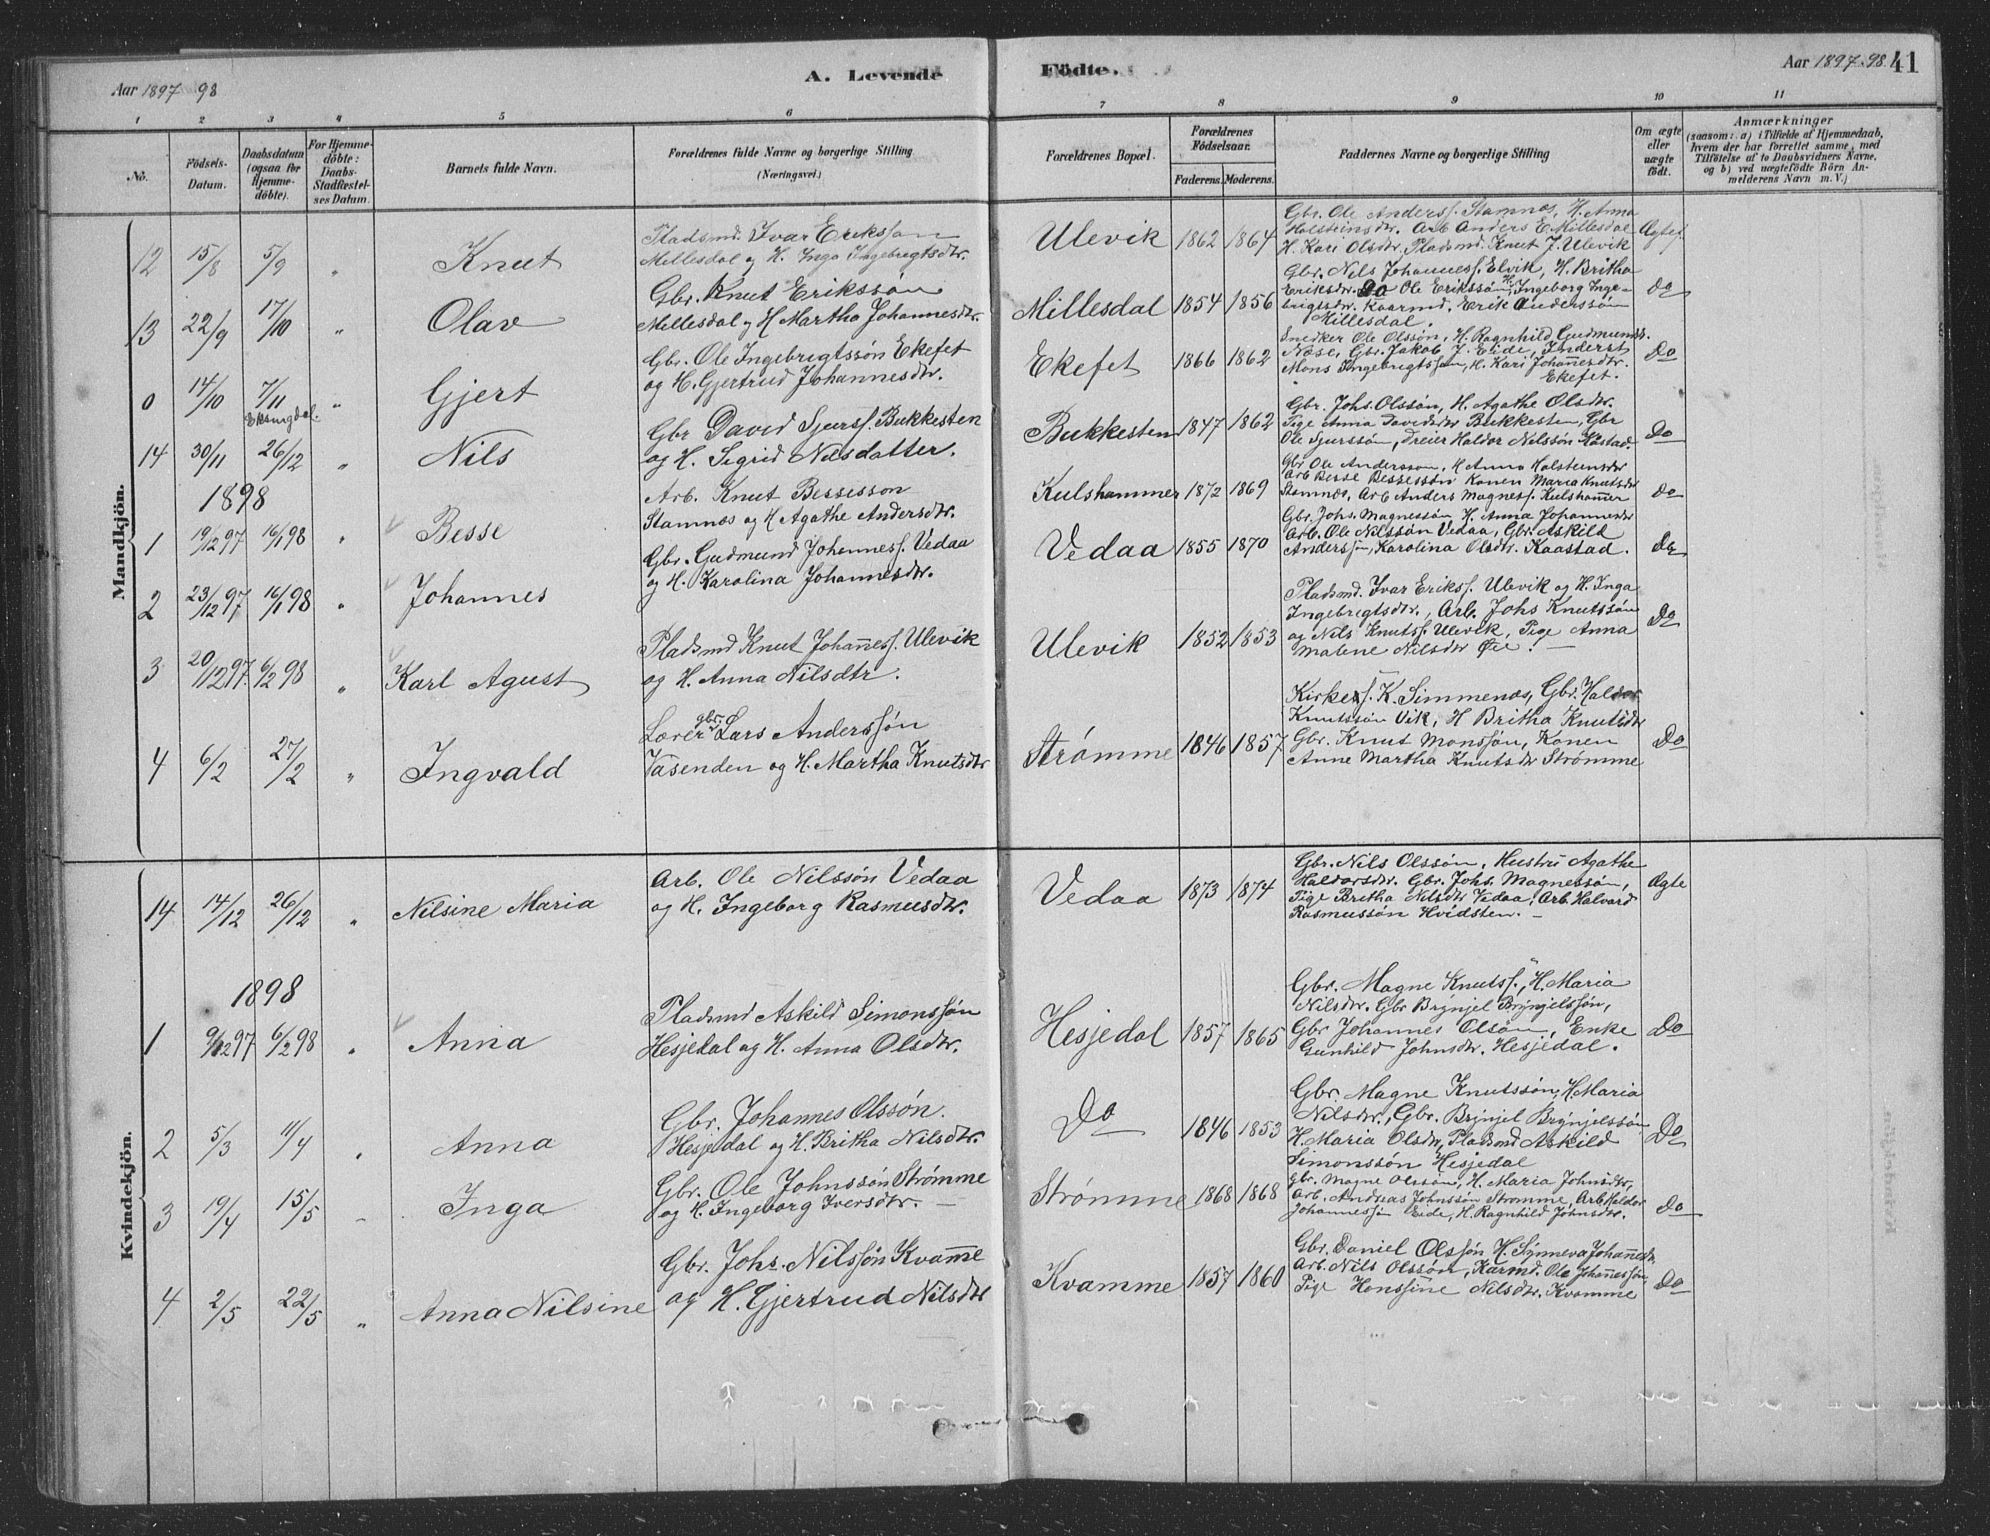 Aar 1897 98
A. Levende
Födte.
Aar 1897-98.
41
1 2 3 4 5 6 7 8 9 10 11
No.
Födsels-
Datum.
Daabsdatum
(ogsaa for
Hjemme-
döbte).
For Hjemme-
döbte:
Daabs-
Stadfæstel-
ses Datum.
Barnets fulde Navn.
Forældrenes fulde Navne og borgerlige Stilling
(Næringsvei.)
Forældrenes Bopæl.
Forældrenes
Födselsaar.
Faderens. Moderens.
Faddernes Navne og borgerlige Stilling
Om ægte
eller
uægte
födt.
Anmærkninger
(saasom: a) i Tilfælde af Hjemmedaab,
hvem der har forrettet samme, med
Tilföielse af to Daabsvidners Navne,
og b) ved uægtefödte Börn An-
melderens Navn m. V.)
Mandkjön.
12 15/8 5/9 " Knut
Pladsmd. Ivar Eriksson
Millesdal og H. Inga Ingebrigtsdtr.
Ulevik 1862 1864
Gbr. Ole Anderss. Stamnes, H. Anna
Holsteinsdtr. Arb Anders E. Millesdal
H. Kari Olsdtr. Pladsmd. Knut J. Ulevik
Ægtef.
13 22/9 17/10 " Olav
Gbr. Knut Eriksson
Millesdal og H Martha Johannesdtr.
Millesdal 1854 1856
Gbr. Nils Johanness. Elvik, H. Britha
Eriksdtr. Do Ole Erikssön, H. Ingeborg Inge-
brigtsdtr. Kaarmd. Erik Anderssön
Millesdal.
do
0 14/10 7/11 Eksingdal. " Gjert
Gbr. Ole Ingebrigtssön Ekefet
og H. Gjertrud Johannesdtr.
Ekefet 1866 1862
Snedker Ole Olssön, H. Ragnhild Gudmunds.
Nose, Gbr. Jakob J. Eide, Inderst
Mons Ingebrigtssøn, H. Kari Johannesdtr.
Ekefet.
Do
14 30/11 26/12 " Nils
Gbr David Sjurss. Bukkesten
og H. Sigrid Nilsdatter.
Bukkesten 1847 1862
Gbr. Johs. Olssön, H. Agathe Olsdtr.
Pige Anna Davidsdtr Bukkesten, Gbr
Ole Sjurssön, Dreier Haldor Nilssön Kastad.
Do
1898
1 19/12 97 16/1 98 " Besse
Arb. Knut Bessesson
Stamnes og H Agathe Andersdtr.
Kulshammer 1872 1869
Gbr Ole Andersson, H Anna Holsteinsdtr
Arb Besse Bessessön Konen Maria Knutsdtr
Stamnes, Arb Anders Magness. Kulshamer
do
2 23/12 97 16/1 98 " Johannes
Gbr. Gudmund Johanness. Vedaa
og H. Karolina Johannesdtr.
Vedaa 1855 1870
Gbr. Johs. Magnessön H. Anna Johannesdtr
Arb. Ole Nilssøn Vedaa, Gbr. Askild
Anderssøn, Karolina Olsdtr. Kaastad.
Do
3 20/12 97. 6/2 98 " Karl Agust
Pladsmd Knut Johanness. Ulevik
og H. Anna Nilsdtr.
Ulevik 1852 1853
Pladsmd. Ivar Erikss. Ulevik og H. Inga
Ingebrigtsdtr., Arb. Johs Knutssøn
og Nils Knutss. Ulevik, Pige Anna
Malene Nilsdtr Øie.
Do
4 6/2 27/2 " Ingvald
Lærer gbr. Lars Anderssøn
Vasenden og H. Martha Knutsdtr
Strømme 1846 1857
Kirkes. K. Simmenæs, Gbr. Haldor
Knutssøn Vik, H Britha Knutsdtr
Gbr. Knut Monssøn, Konen
Anne Martha Knutsdtr Strømme
Do
Kvindekjön.
14 14/12 26/12 " Nilsine Maria
Arb. Ole Nilssøn Vedaa
og H. Ingeborg Rasmusdtr.
Vedaa 1873 1874
Gbr. Nils Olssøn, Hustru Agathe
Haldorsdtr. Gbr. Johs. Magnessøn,
Pige Britha Nilsdtr Vedaa, Arb. Halvard
Rasmussøn Hvidsten.
Ægte
1898
1 9/12 97 6/2 98 " Anna
Pladsmd Askild Simonssøn
Hesjedal og H. Anna Olsdtr.
Hesjedal 1857 1865
Gbr. Magne Knutss., H. Maria
Nilsdtr. Gbr Brynjel Brynjelssøn,
Gbr Johannes Olsøn, Enke
Gunhild Johnsdtr. Hesjedal.
Do
2 5/3 11/4 " Anna
Gbr. Johannes Olssøn.
Hesjedal og H. Britha Nilsdtr.
Do 1846 1853
Gbr. Magne Knutssøn, H Maria
Nilsdtr., Gbr. Brynjel Brynjelssøn
H. Maria Olsdtr, Pladsmd Askild
Simonssøn Hesjedal
Do
3 19/4 15/5 - Inga
Gbr. Ole Johnssøn Strømme
og H. Ingeborg Iversdtr. —
Strømme 1868 1868
Gbr. Magne Olssøn, H. Maria Johnsdtr,
Arb. Andreas Johnssøn Strømme, Arb. Haldor
Johannessøn Eide, H. Ragnhild Johnsdtr.
Do
4 2/5 22/5 " Anna Nilsine
Gbr. Johs. Nilssøn Kvamme
og H. Gjertrud Nilsdtr
Kvamme 1857 1860
Gbr. Daniel Olssøn H. Synneva Johannesdtr.
Arb. Nils Olssøn, Karmd. Ole Johannessøn,
Pige Hanssine Nilsdtr. Kvamme
Do